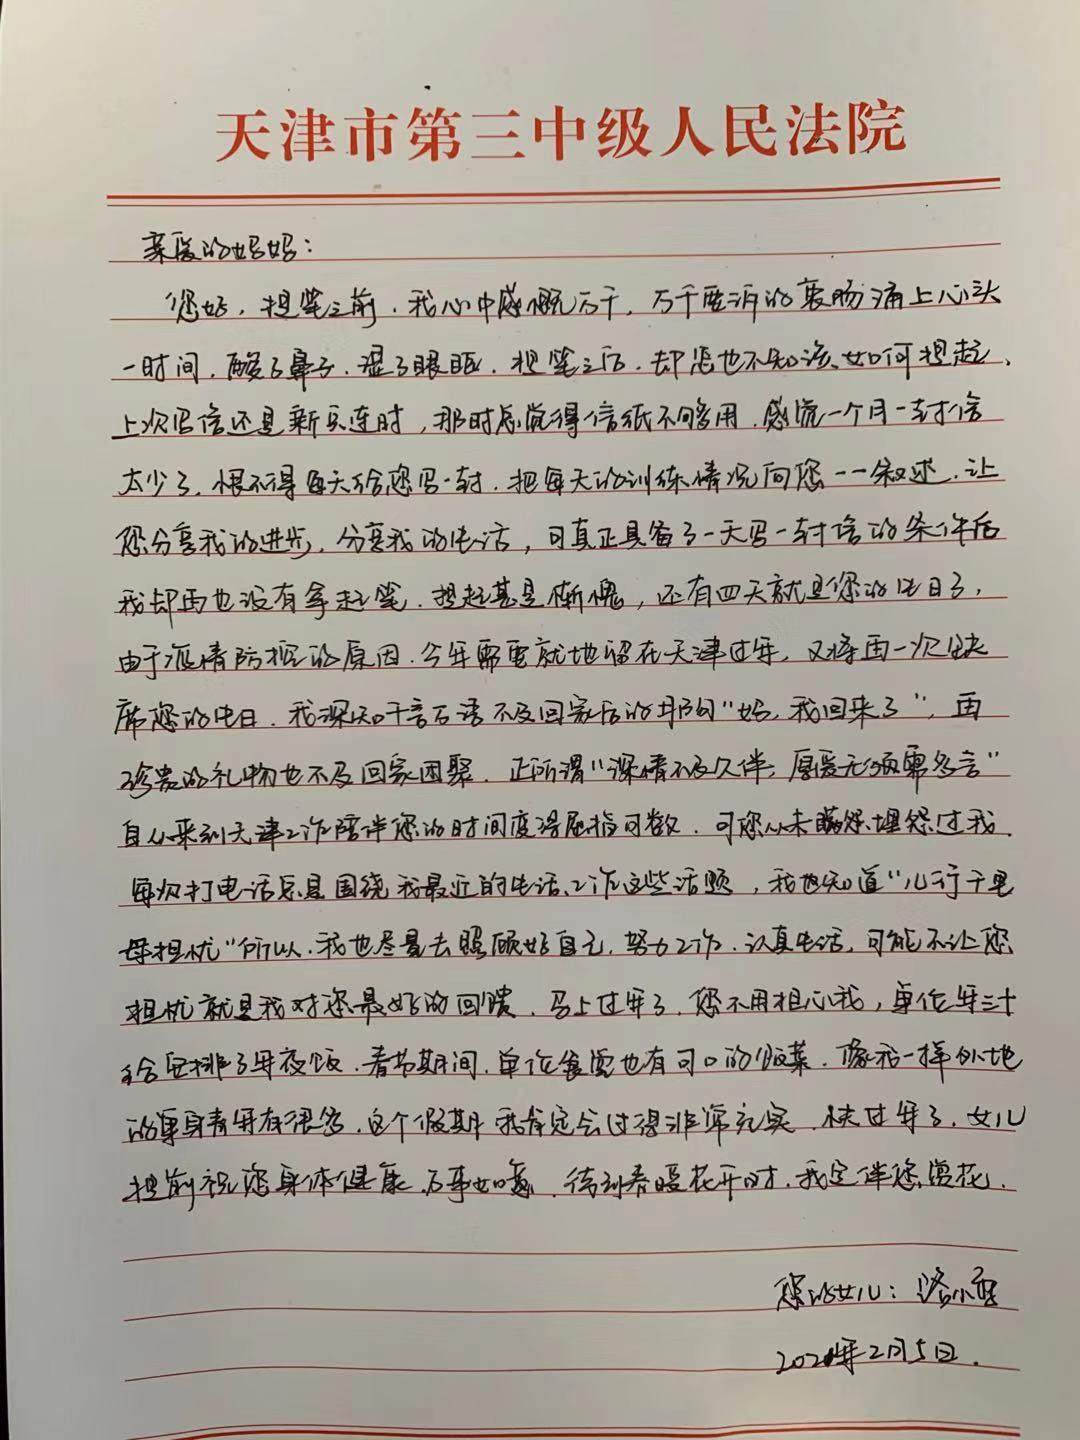 天津市第三中级人民法院
亲爱的妈妈：
您好，提笔之前，我心中感慨万千，万千要诉的衷肠涌上心头
一时间，酸了鼻子，湿了眼眶，提笔之后，却怎也不知该如何提起，
上次写信还是新兵连时，那时总觉得信纸不够用，感觉一个月一封信
太少了，恨不得每天给您写一封，把每天的训练情况向您一一叙述，让
您分享我的进步，分享我的生活，可真正具备了一天写一封信的条件后
我却再也没有拿起笔，想起甚是惭愧，还有四天就是您的生日了，
由于疫情防控的原因，今年需要就地留在天津过年，又将再一次缺
席您的生日，我深知千言万语不及回家后的那句“妈，我回来了”，再
珍贵的礼物也不及回家团聚，正所谓“深情不及久伴，厚爱无须多言”
自从来到天津工作陪伴您的时间变得屈指可数，可您从未埋怨过我，
每次打电话总是围绕我最近的生活、工作这些话题，我也知道“儿行千里
母担忧”所以，我也尽量去照顾好自己，努力工作，认真生活，可能不让您
担忧就是我对您最好的回馈，马上过年了，您不用担心我，单位年三十
给安排了年夜饭，春节期间，单位食堂也有可口的饭菜，像我一样外地
的单身青年有很多，这个假期我肯定会过得非常充实，快过年了，女儿
提前祝您身体健康，万事如意，待到春暖花开时，我定伴您赏花，
您的女儿：
2021年2月5日.